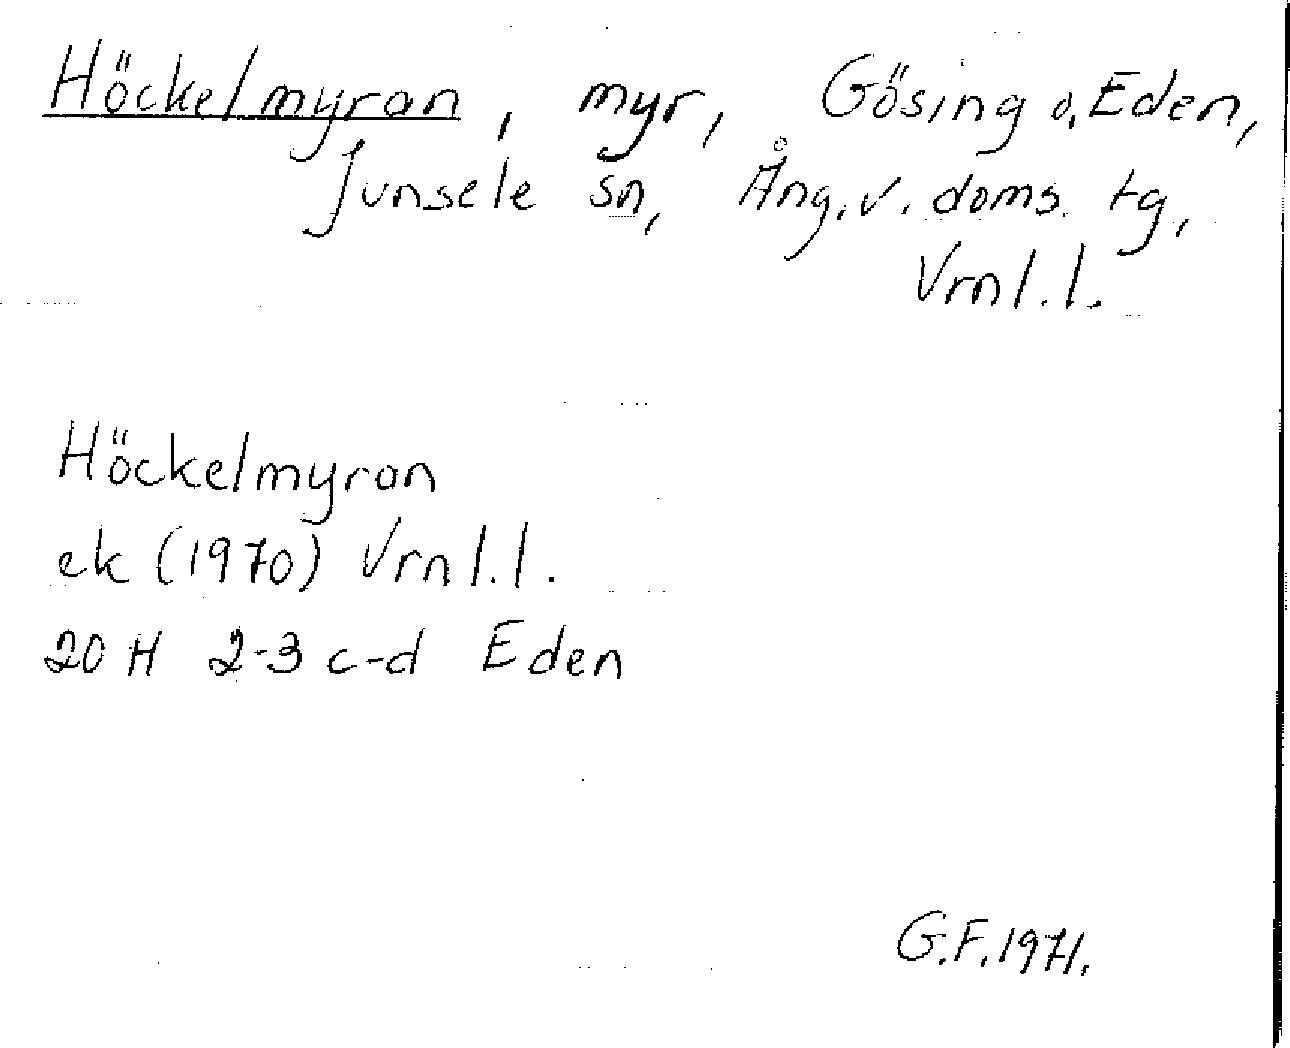 Höckelmyran, myr, Gösing o. Eden,
Junsele sn, Ång. v. doms. tg,
Vrnl. l.
Höckelmyran
ek (1970) Vrnl. l.
20 H 2-3 c-d Eden
G.F. 1971.